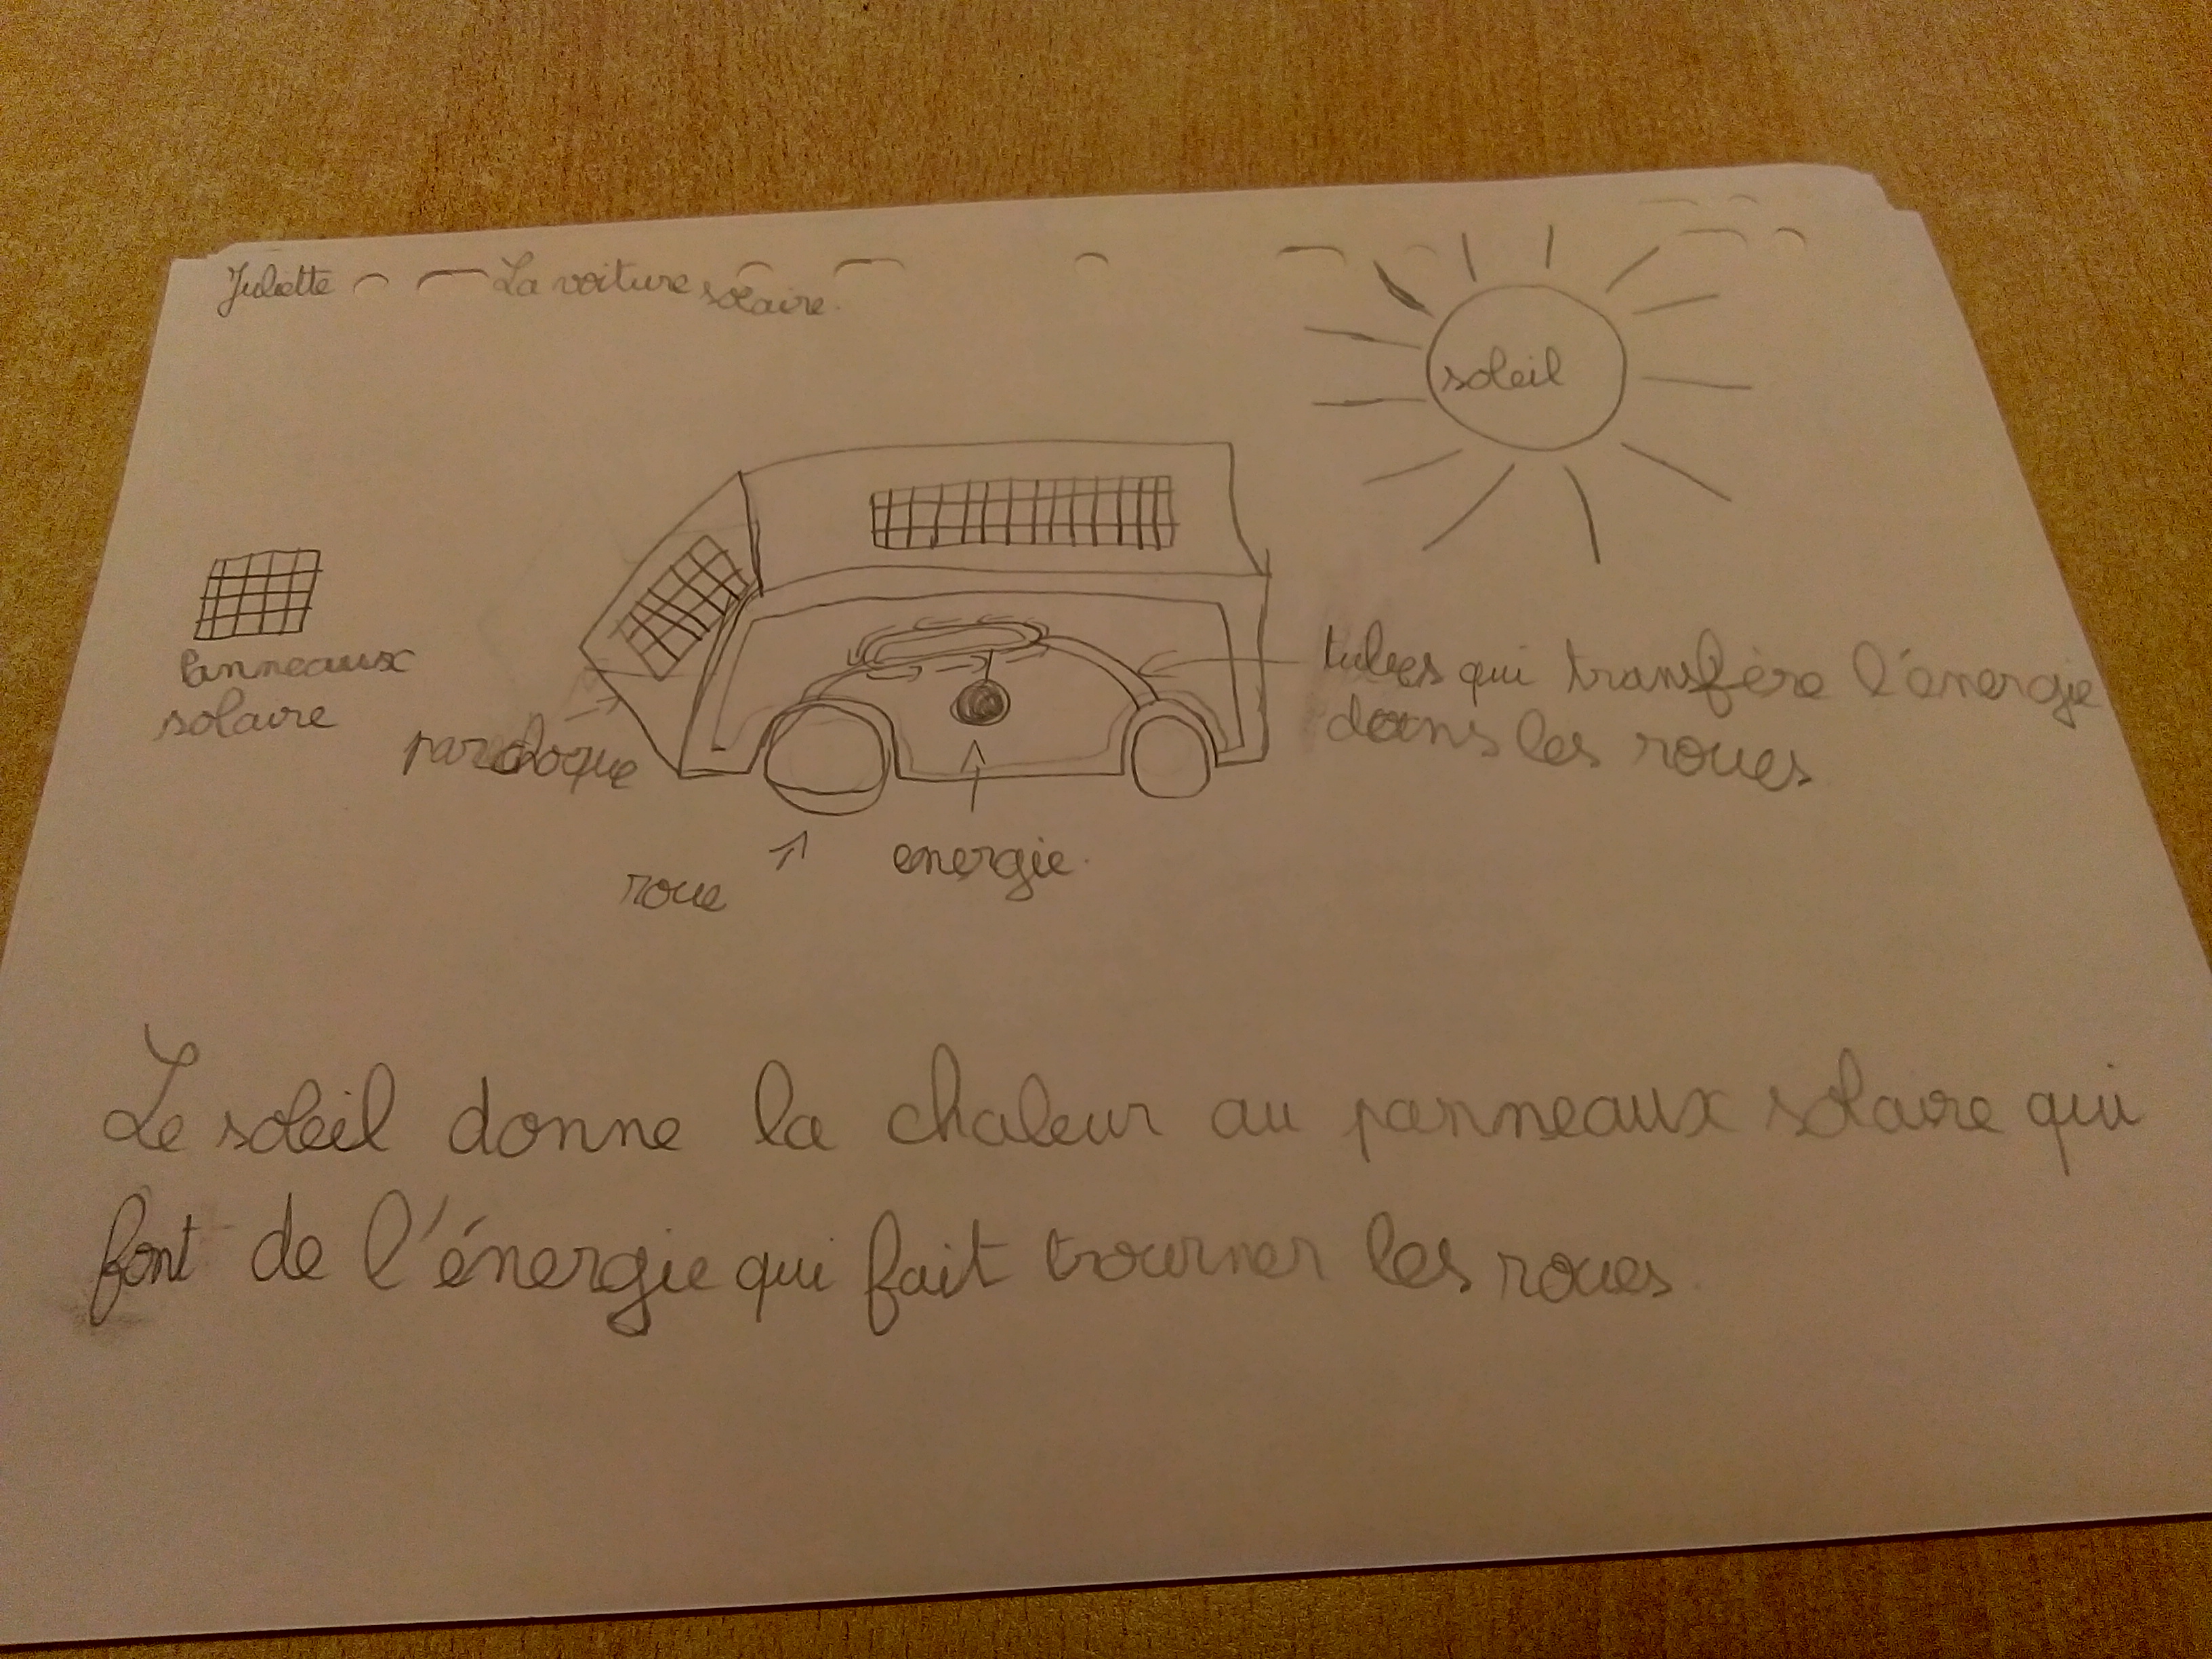 Juliette
La voiture solaire.
soleil
Panneaux
solaire
parchoque
tubes qui transfère l'énergie
dans les roues
roue
energie.
Le soleil donne la chaleur au panneaux solaire qui
font de l'énergie qui fait tourner les roues.